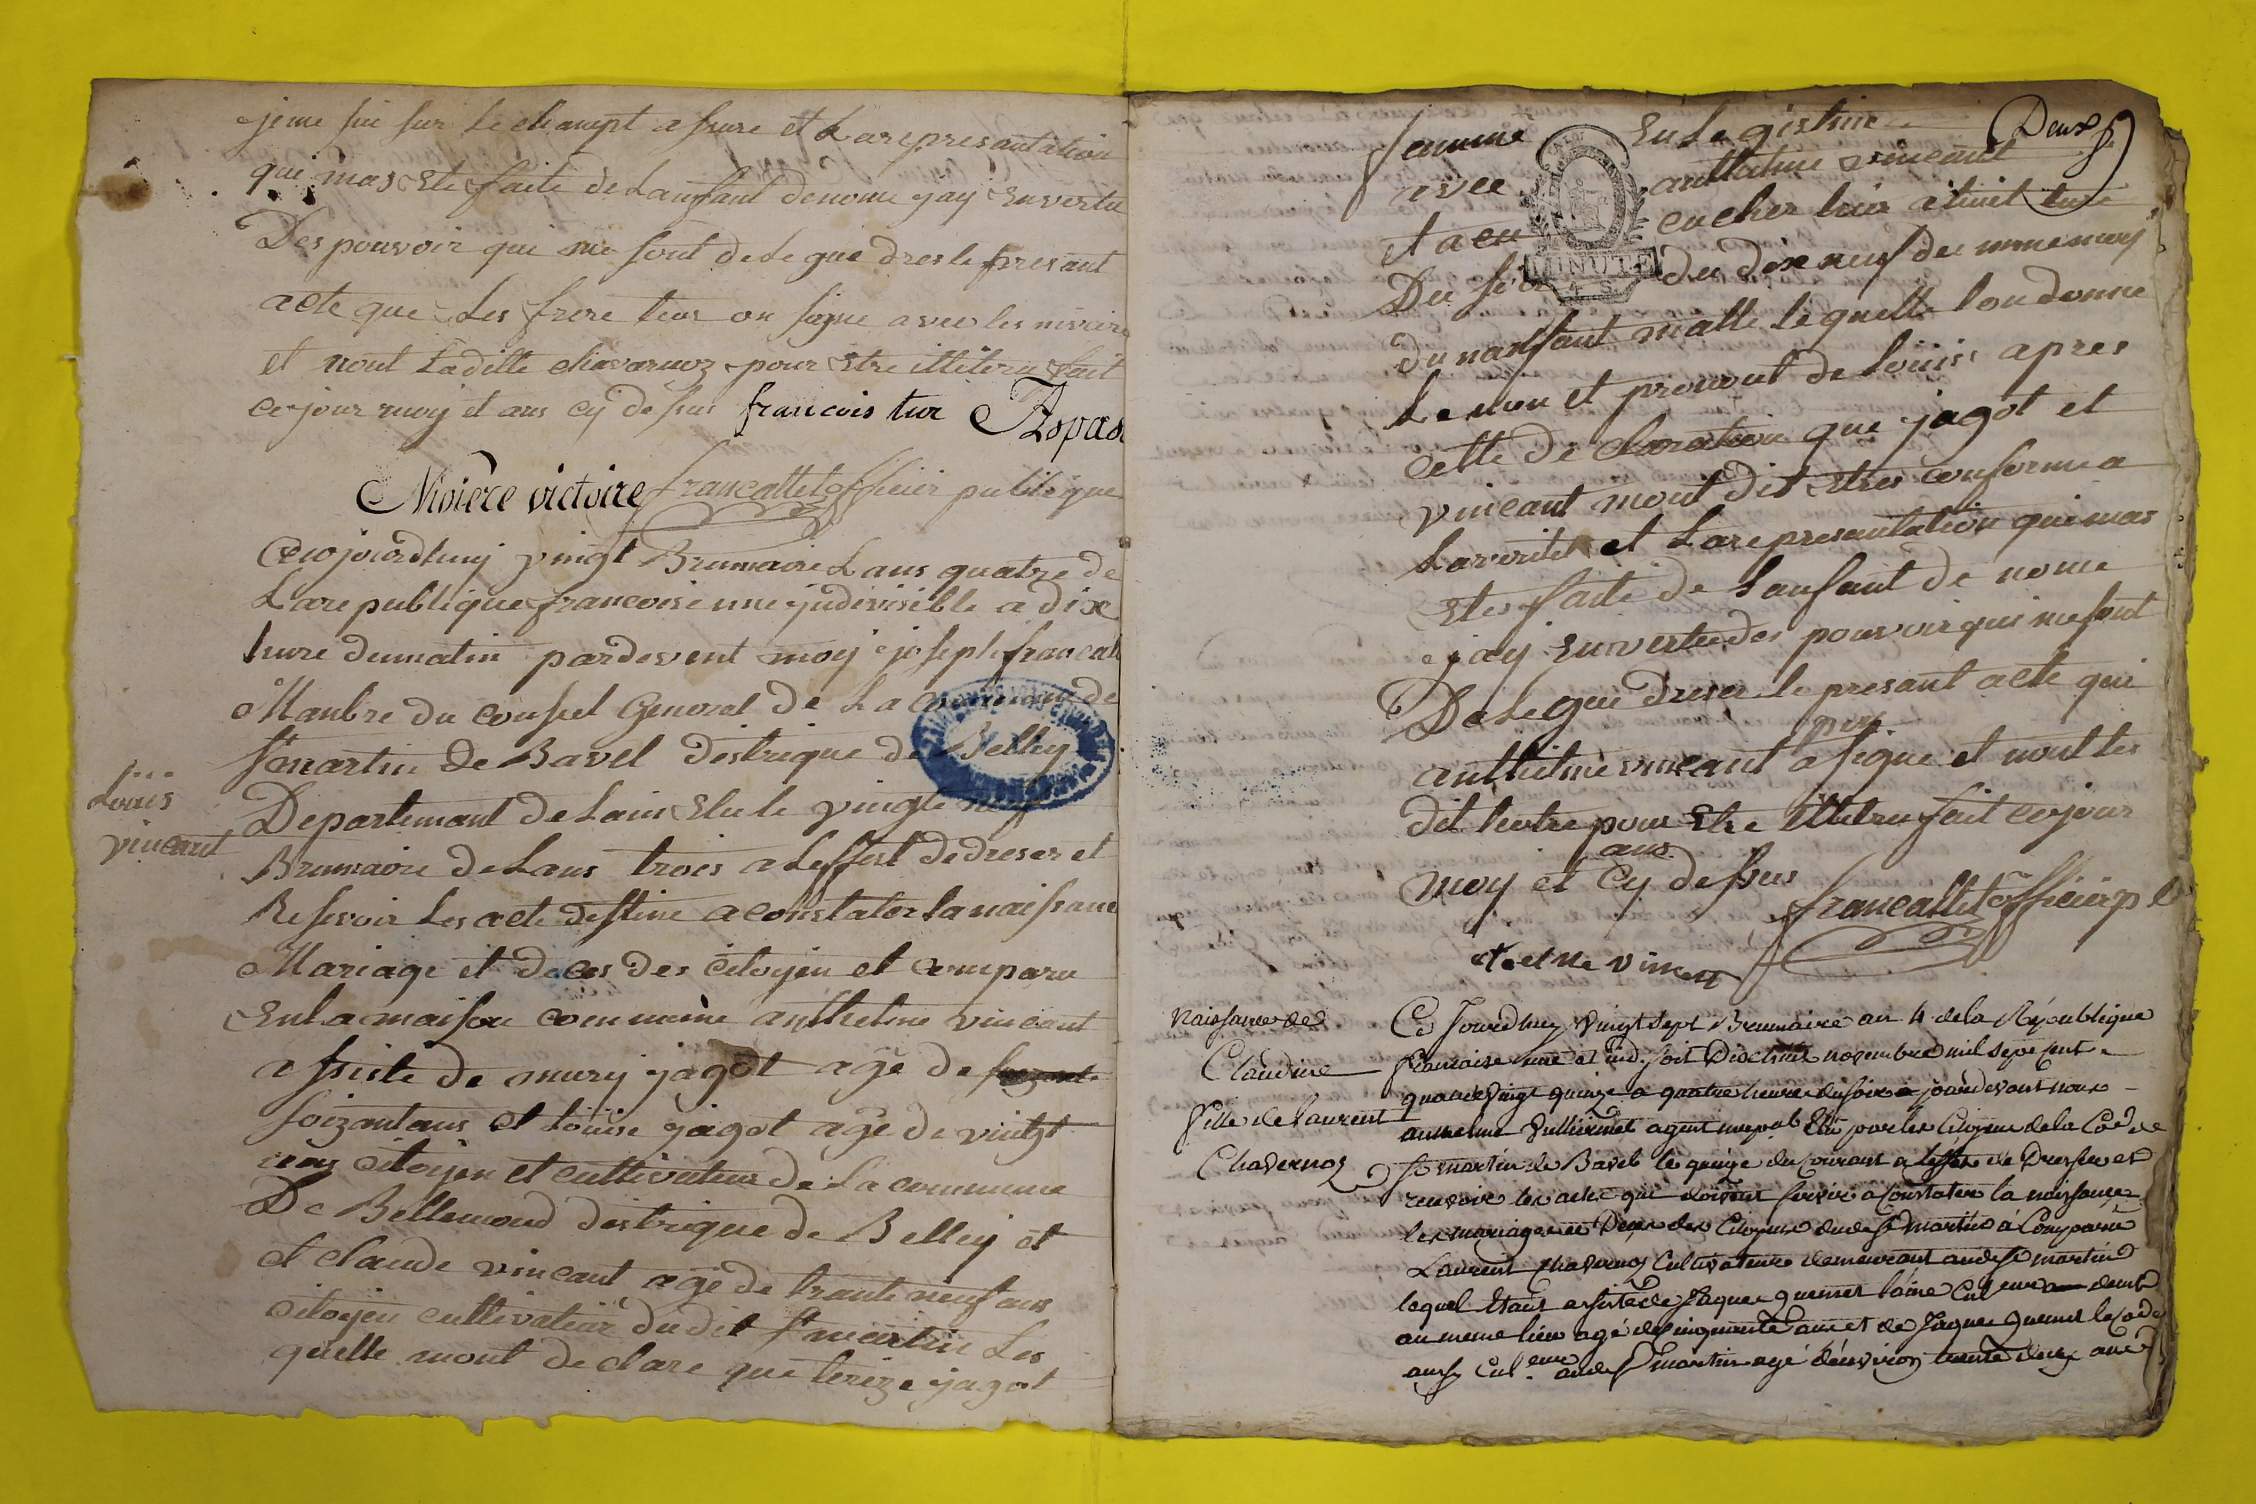 je me sui sur le champt asurre et La represantation
qui mas ete faite de Lanfant denome jay en vertu
Des pouvoir qui me sont delegué dres le presant
acte que Les frere tur on signe avec les nivoire
et nont Ladille chavarnoz pour Etre illiteru fait
ce jour moy et ans cy desus francois tur
Nivière victoire francallet officier publique
Cejourdhuy vingt Brumaire Lans quatre de
La republique francoise une jndivisible a dix
hure dumatin pardevent moy joseph francalle
Manbre du consiel General de La commune de
St martin de Bavel destrique de Belley
Departemant de Lain Elu le vingte neuf
Brumaire de Lans trois a Leffest de dreser et
Resevoir Les acte destine a constater la naissance
Mariage et deces des citoyen et comparu
En La maison commune anthelme vincant
assiste de mury jagot age de
soizantans et louise jagot age de vingt
citoyen et cultivateur de La commune
De Bellemond destrique de Belley et
et claude vincant age de trante neuf ans
citoyen cultivateur dudit St martin Les
quelle mont declare que terize jagot
Louis
vincant
Deux
famme En Legistime
avec anthelme vincant
et acu cucher hier a huit hure
Du soir du dix neuf du meme moy
Du nanfant malle lequelle lon donne
Le nom et pronont de louis apres
cette de claration que jagot et
vincant mont dit Etres conforme a
La verite et La represantation qui mas
Ete faite de Lanfant de nome
jay En vertu des pouvoir qui me sont
De Legue dreser le presant acte qui
anthelme vincant a signe et nont les
dit lautre pour Etre illiteru fait ce jour
ans
moy et cy dessus
francallet officier p
MINUTE
Naissance de
Claudine
Fille de Laurent
Chavernoz
Ce Jourdhuy vingt sept Brumaire an 4 de la République
francaise une et ind. soit Dixhuit novembre mil sept cent
quatrevingt quinze a quatre heures du soir pardevant nous
anthelme Vullierinet agent mupal Elu par les Citoyens de la Coe de
St martin de Bavel le quinze du Courant a leffet de Dresser et
recevoir les actes qui doivent servir a Constater la naissance
les mariages et Deces des Citoyens dudt St martin à Comparu
Laurent chavernoz Cultivateur demeurant audt St martin
lequel Etant assisté de Jaques quemet laine Culeur demt
au meme lieu agé de cinquante ans et de Jaques quemet le
aussy Culeur audt St martin agé denviron trente deux ans